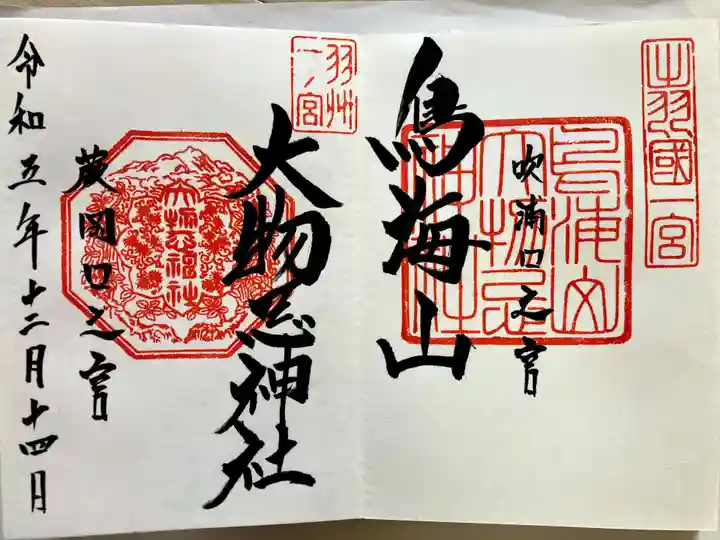 出羽國一宮
吹浦口之宮
鳥海山
羽州
一ノ宮
大物忌神社
大物忌神社
蕨岡口之宮
令和五年十二月十四日